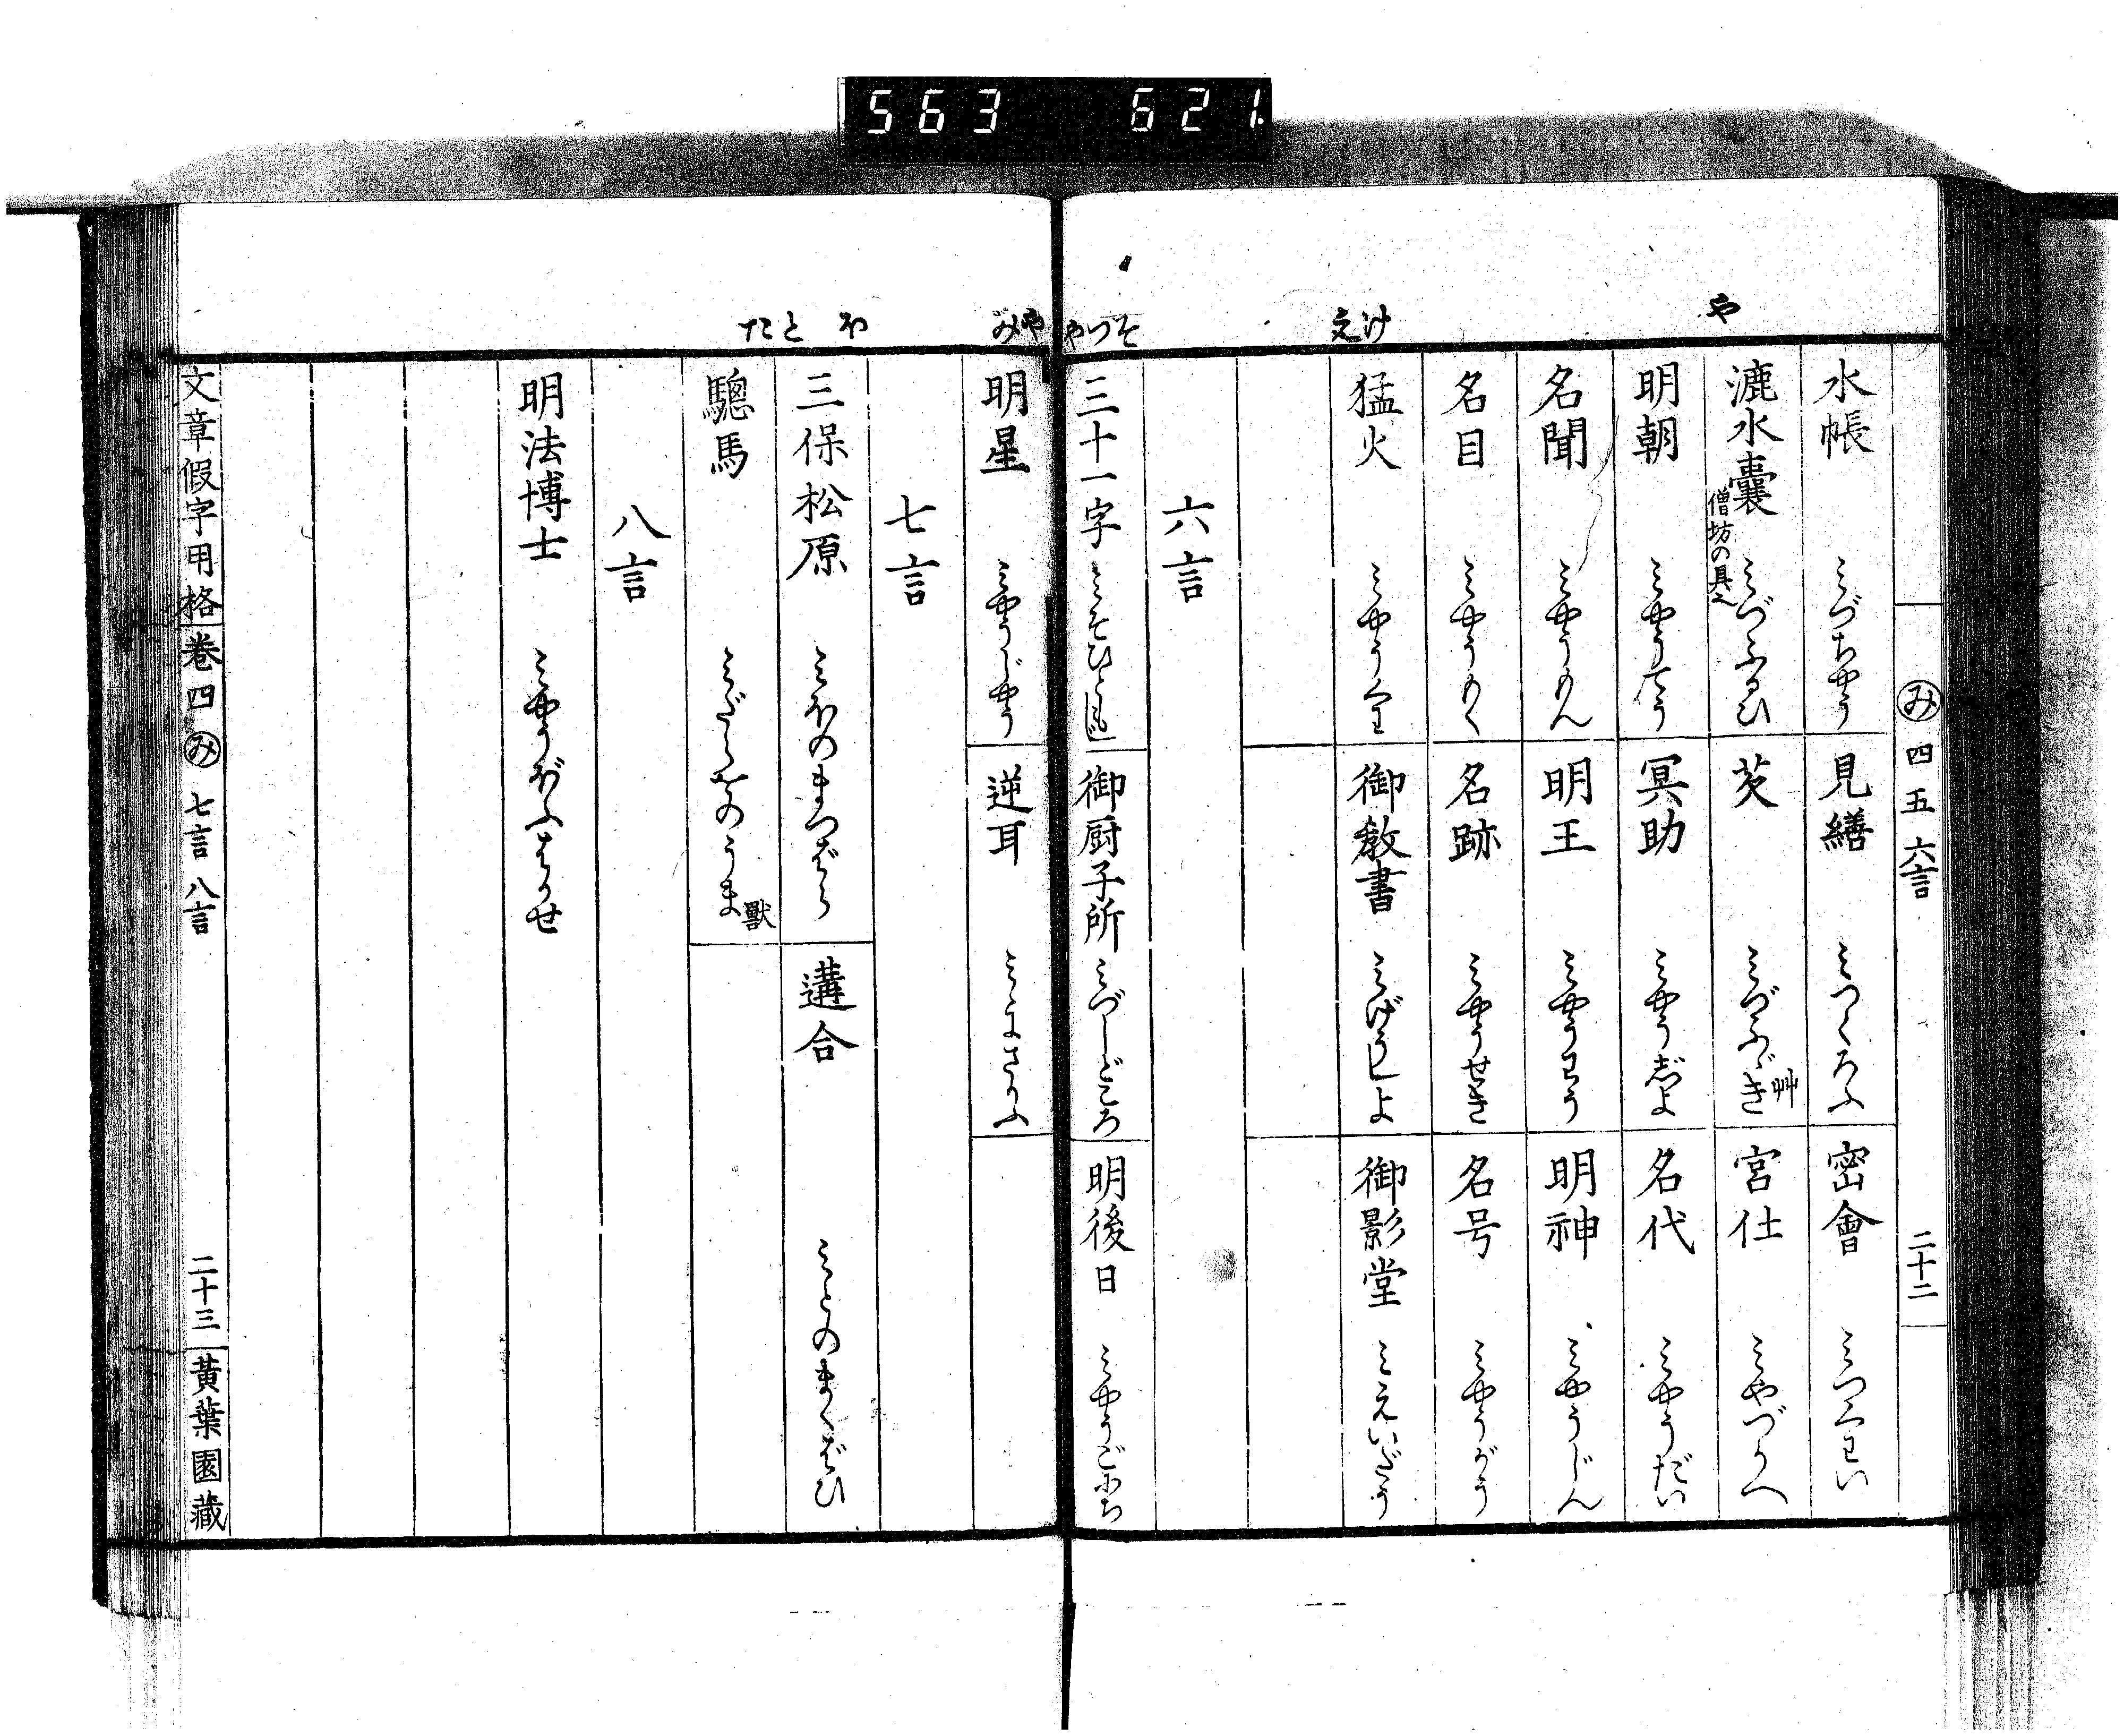 563 621.
や
け
え
そ
つ
や
み 四 五 六言 二十二
水帳 みづちやう
見繕 みつくろふ
密會 みつくわい
漉水嚢 僧坊の具也 みづふるひ
芡 みづふゞき 艸
宮仕 みやづかへ
明朝 みやうてう
冥助 みやうじよ
名代 みやうだい
名聞 みやうもん
明王 みやうわう
明神 みやうじん
名目 みやうもく
名跡 みやうせき
名号 みやうがう
猛火 みやうくわ
御教書 みげうしよ
御影堂 みえいだう
六言
三十一字 みそひともじ
御厨子所 みづしどころ
明後日 みやうごにち
や
み
ほ
と
た
明星 みやうじやう
逆耳 みゝにさかふ
七言
三保松原 みほのまつばら
遘合 みとのまくばひ
驄馬 みだらをのうま 獸
八言
明法博士 みやうばふはかせ
文章假字用格 巻四 み 七言 八言 二十三 黄葉園藏